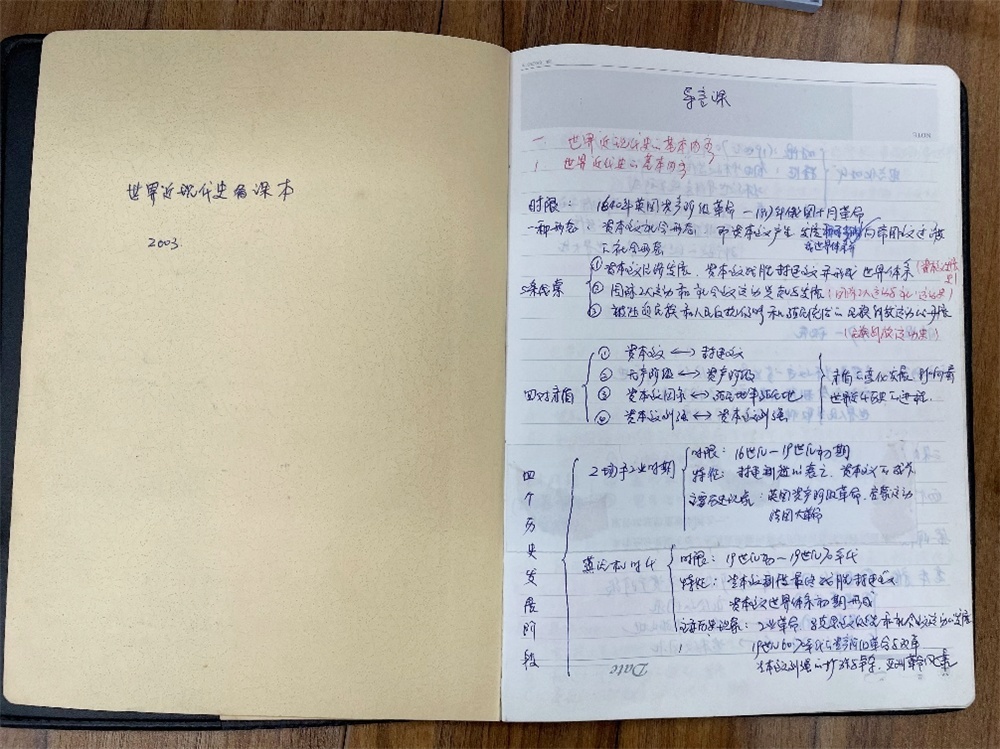 世界近现代史备课本
2003.
导言课
一 世界近现代史的基本内容
1 世界近代史的基本内容
时限: 1640年英国资产阶级革命—1917年俄国十月革命
一种形态: 资本主义社会形态 即资本主义产生 发展 向帝国主义过渡
的社会形态
三条线索
① 资本主义的发展, 资本主义战胜封建主义并形成世界体系
② 国际工人运动和社会主义运动兴起与发展
③ 被压迫民族和人民反抗 民族解放运动的开展
四对矛盾
① 资本主义 ⟷ 封建主义
② 无产阶级 ⟷ 资产阶级
③ 资本主义国家 ⟷ 殖民地半殖民地
④ 资本主义列强 ⟷ 资本主义列强
矛盾的变化发展
世界历史的进程
四个历史发展阶段
工场手工业时期
时限: 16世纪—19世纪初期
特征: 封建制度的衰亡, 资本主义的成长
主要历史现象: 英国资产阶级革命, 启蒙运动
法国大革命
蒸汽机时代
时限: 19世纪初—19世纪70年代
特征: 资本主义制度最终战胜封建主义
资本主义世界体系初期形成
主要历史现象: 工业革命, 马克思主义 和社会主义运动的发展
19世纪60、70年代的资产阶级革命与改革
资本主义列强的扩张与争夺, 亚洲革命风暴
Date